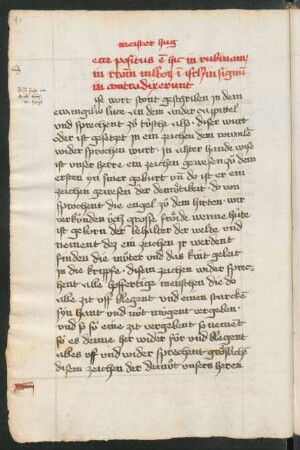 meister hug
ecce positus ē hic in
in
in contradixerunt
ise wort stont geschriben in dem
ewangilio luce an dem ander cappittel
vnd sprechent zů tútsche also diser wirt
oder ist gesetzt in ein zeichen dem
wider sprochen wirt in achter hande wise
ist vnser herre ein zeichen gewesen zů dem
ersten in siner geburt vn̄ do ist er ein
zeichen gewesen der demůtikeit do von
sprochent die engel zů dem hirten wir
verkúnden úch grosse fróide wenne húte
ist geborn der behalter der welte vnd
nement dez ein zeichen ir werdent
finden die můter vnd das kint geleit
in die krippfe disem zeichen wider sprec
hent alle hoffertige menschen die do
alle zit vff blegent vnd einen starcke
syn hant vnd nút mugent vergeben
vnd so so eine zit vergebent so nement
so es denne her wider fúr vnd blegent
alles vff vnd wider sprechent grósliche
disem zeichen der demůt vnsers heren